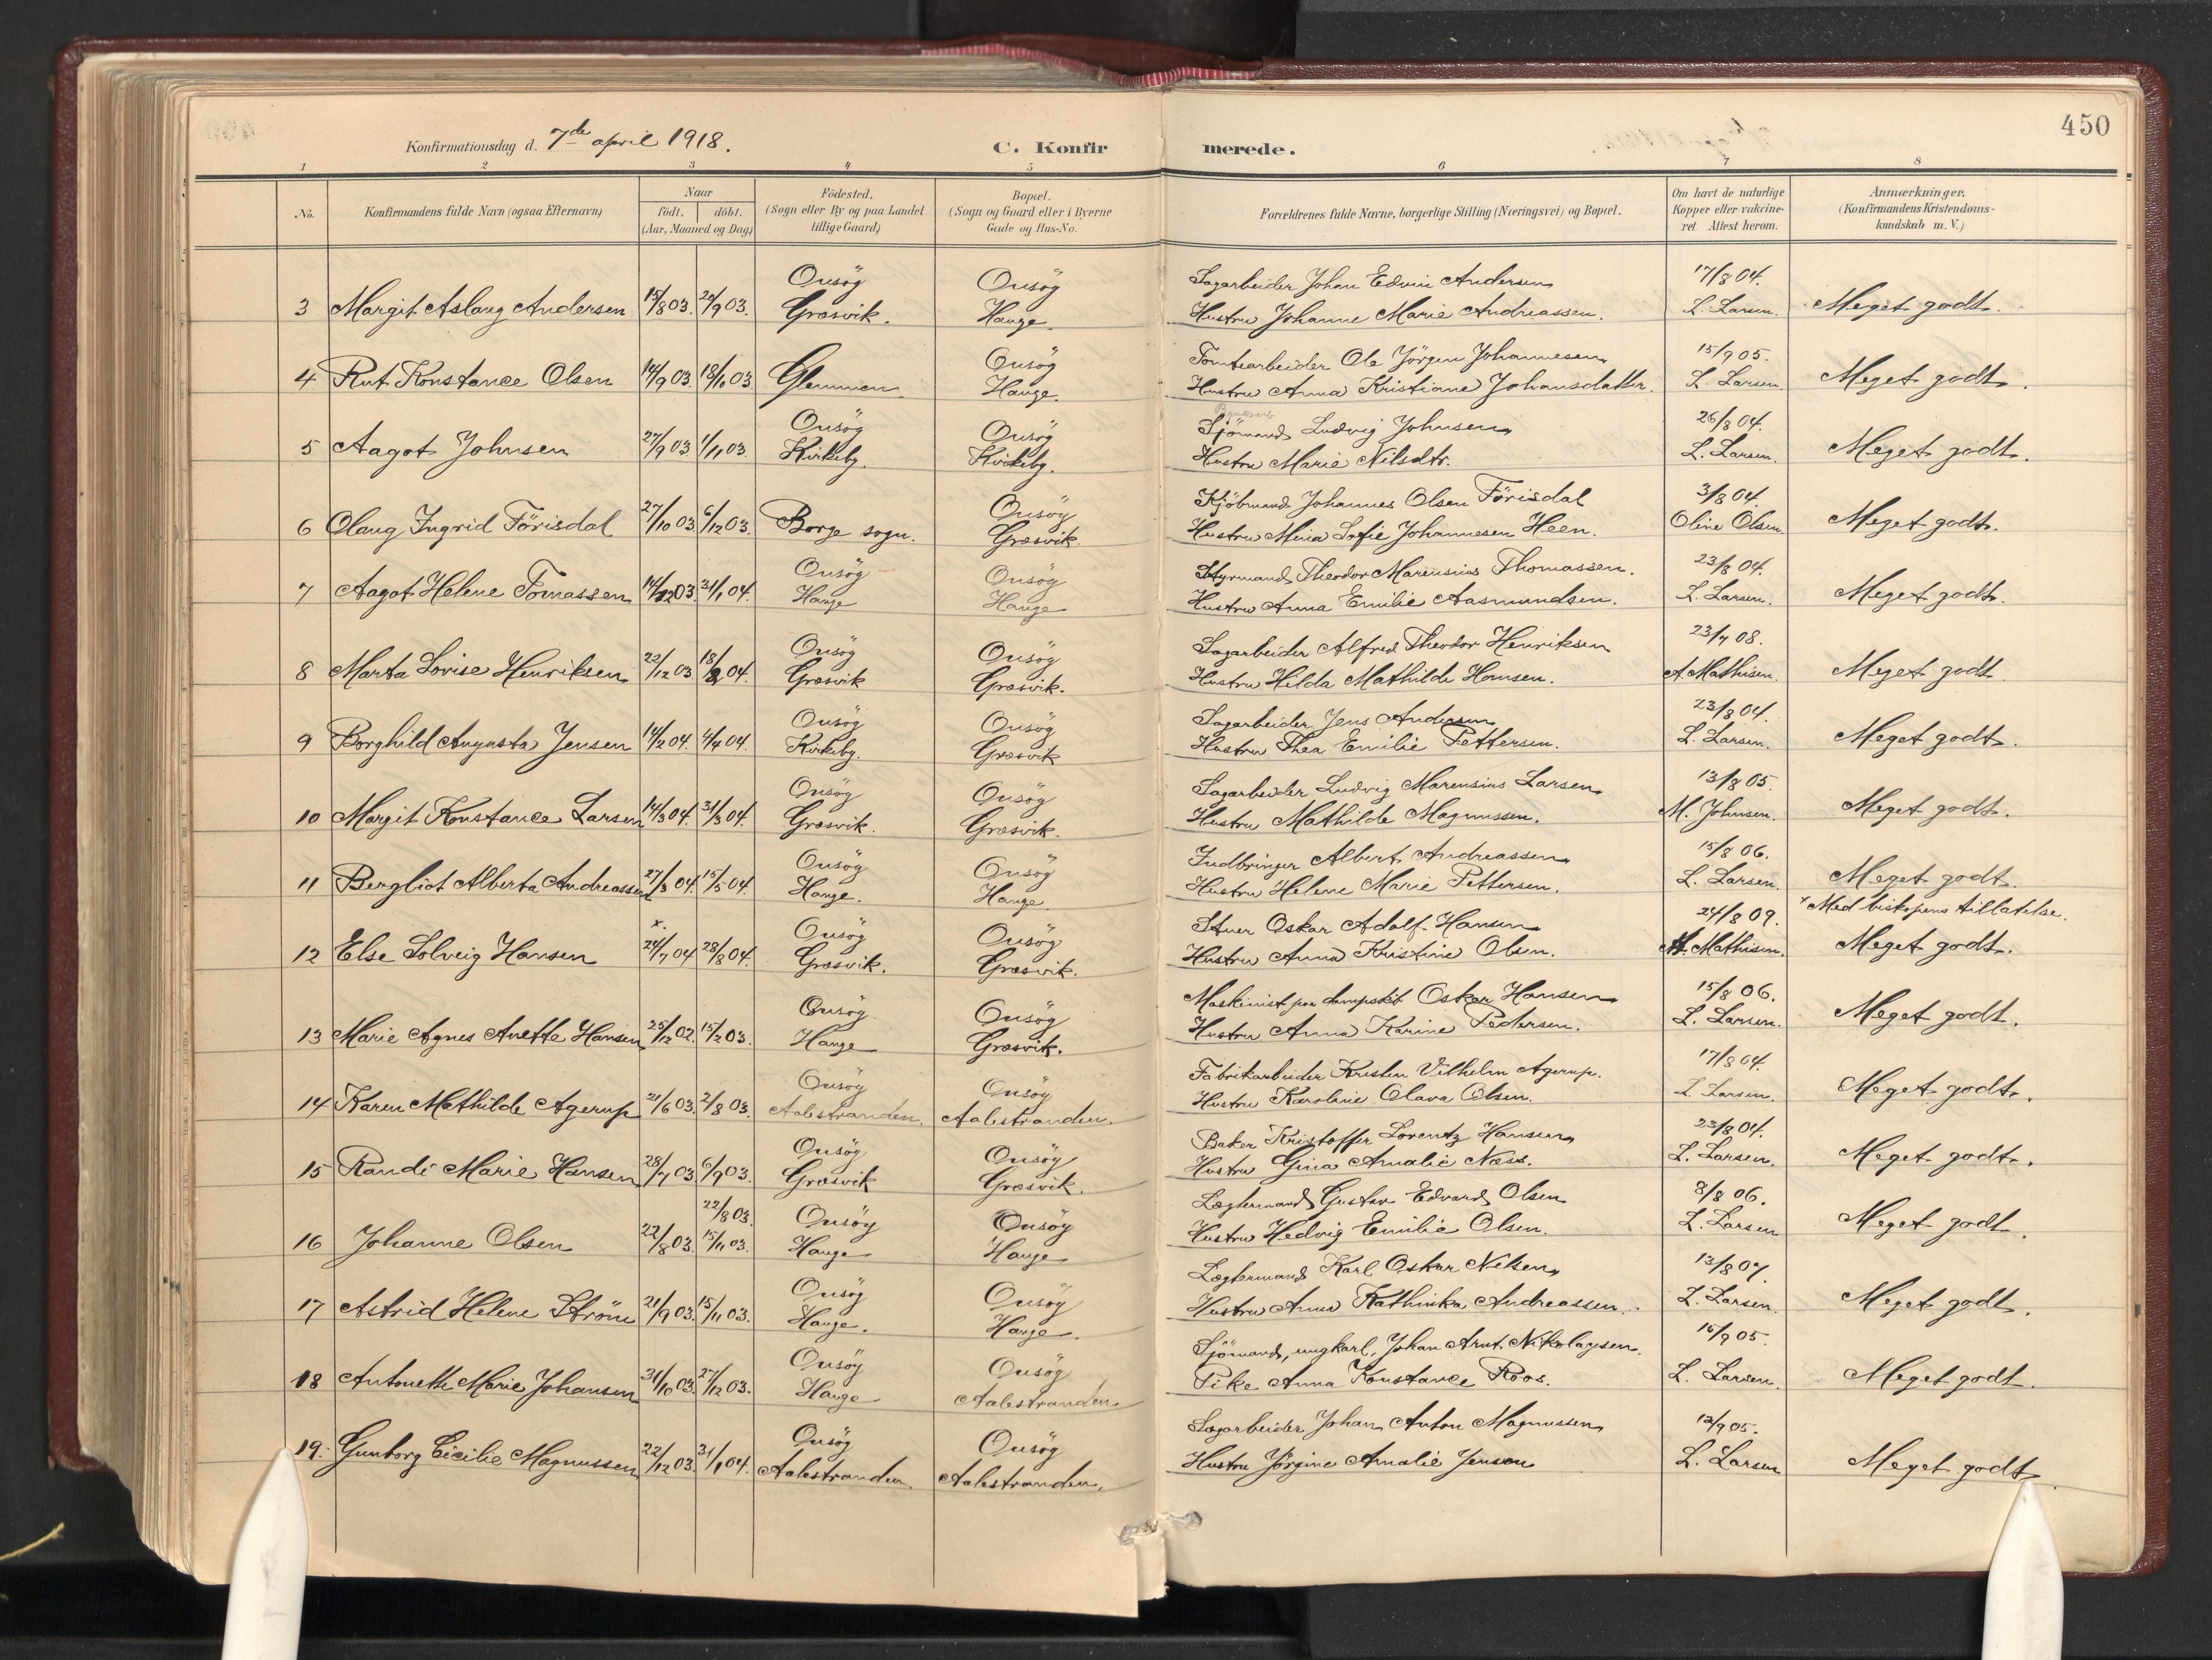 450
Konfirmationsdag d. 7de april 1918.
C. Konfirmerede.
1 2 3 4 5 6 7 8
No.
Konfirmandens fulde Navn (ogsaa Efternavn)
Naar
födt. döbt.
(Aar, Maaned og Dag)
Födested.
(Sogn eller By og paa Landet
tillige Gaard)
Bopæl.
(Sogn og Gaard eller i Byerne
Gade og Hus-No.
Forældrenes fulde Navne, borgerlige Stilling (Næringsvei) og Bopæl.
Om havt de naturlige
Kopper eller vakcine-
ret Attest herom.
Anmærkninger.
(Konfirmandens Kristendoms-
kundskab m. V.)
Onsög Onsög Sagarbeider Johan Edvin Andersen 17/8 04.
3 Margit Aslaug Andersen 15/8 03. 20/9 03. Græsvik. Hauge. Hustru Johanne Marie Andreassen. L. Larsen. Meget godt.
Onsög Tomtearbeider Ole Jörgen Johannesen 15/9 05.
4 Rut Konstance Olsen 14/9 03. 18/10 03. Glemmen. Hauge. Hustru Anna Kristiane Johansdatter. L. Larsen. Meget godt.
Onsög Onsög Sjömand Ludvig Johnsen 26/8 04.
5 Aagot Johnsen 27/9 03 1/11 03. Kirkeby. Kirkeby. Hustru Marie Nilsdtr. L. Larsen. Meget godt.
Onsög Kjöbmand Johannes Olsen Förisdal 3/8 04.
6 Olaug Ingrid Förisdal 27/10 03 6/12 03. Borge sogn. Græsvik. Hustru Mina Sofie Johannesen Heen. Oline Olsen. Meget godt.
Onsög Onsög Styrmand Theodor Marensius Thomassen. 23/8 04.
7 Aagot Helene Tomassen 14/12 03. 31/1 04. Hauge Hauge Hustru Anna Emilie Aasmundsen. L. Larsen. Meget godt.
Onsög Onsög Sagarbeider Alfred Theodor Henriksen 23/7 08.
8 Marta Lovise Henriksen 22/12 03. 18/2 04. Græsvik Græsvik. Hustru Hilda Mathilde Hansen. A. Mathisen. Meget godt
Onsög Onsög Sagarbeider Jens Andersen 23/8 04.
9 Borghild Augusta Jensen 14/2 04. 4/4 04. Kirkeby. Græsvik Hustru Thea Emilie Pettersen. L. Larsen. Meget godt.
Onsög Onsög Sagarbeider Ludvig Marensius Larsen 13/8 05.
10 Margit Konstance Larsen 14/3 04. 31/3 04. Græsvik. Græsvik. Hustru Mathilde Magnussen. M. Johnsen. Meget godt.
Onsög Onsög Indbringer Albert Andreassen 15/8 06.
11 Bergliot Alberta Andreassen 27/3 04. 15/5 04. Hauge. Hauge. Hustru Helene Marie Pettersen. L. Larsen. Meget godt.
x. Onsög Onsög Stuer Oskar Adolf Hansen 24/8 09. x Med biskopens tillatelse.
12 Else Solveig Hansen 24/7 04 28/8 04. Græsvik. Græsvik. Hustru Anna Kristine Olsen. A. Mathisen. Meget godt.
Onsög Onsög Maskinist paa dampskib Oskar Hansen 15/8 06.
13 Marie Agnes Anette Hansen 25/12 02. 15/2 03. Hauge Græsvik. Hustru Anna Karine Pedersen. L. Larsen. Meget godt.
Onsög Onsög Fabrikarbeider Kristen Vilhelm Agerup. 17/8 04.
14 Karen Mathilde Agerup 21/6 03. 2/8 03. Aalestranden. Aalestranden. Hustru Karoline Olava Olsen. L. Larsen. Meget godt.
Onsög Onsög Baker Kristoffer Lorentz Hansen 23/8 04.
15 Randi Marie Hansen 28/7 03. 6/9 03. Græsvik Græsvik. Hustru Gina Amalie Næss. L. Larsen. Meget godt.
22/8 03. Onsög Onsög Lægtermand Gustav Edvard Olsen 8/8 06.
16 Johanne Olsen 22/8 03. 15/11 03. Hauge Hauge Hustru Hedvig Emilie Olsen. L. Larsen Meget godt.
Onsög Onsög Lægtermand Karl Oskar Nilsen 13/8 07.
17 Astrid Helene Ström 21/9 03. 15/11 03. Hauge. Hauge. Hustru Anna Kathinka Andreassen. L. Larsen. Meget godt.
Onsög Onsög Sjömand, ungkarl, Johan Arnt Nikolaysen. 15/9 05.
18 Antonette Marie Johansen 31/10 03. 27/12 03. Hauge Aalestranden. Pike Anna Konstance Roos. L. Larsen. Meget godt.
Onsög Onsög Sagarbeider Johan Anton Magnussen 12/9 05.
19. Gunborg Cicilie Magnussen 22/12 03. 31/1 04. Aalestranden. Aalestranden. Hustru Jörgine Amalie Jensen L. Larsen Meget godt.